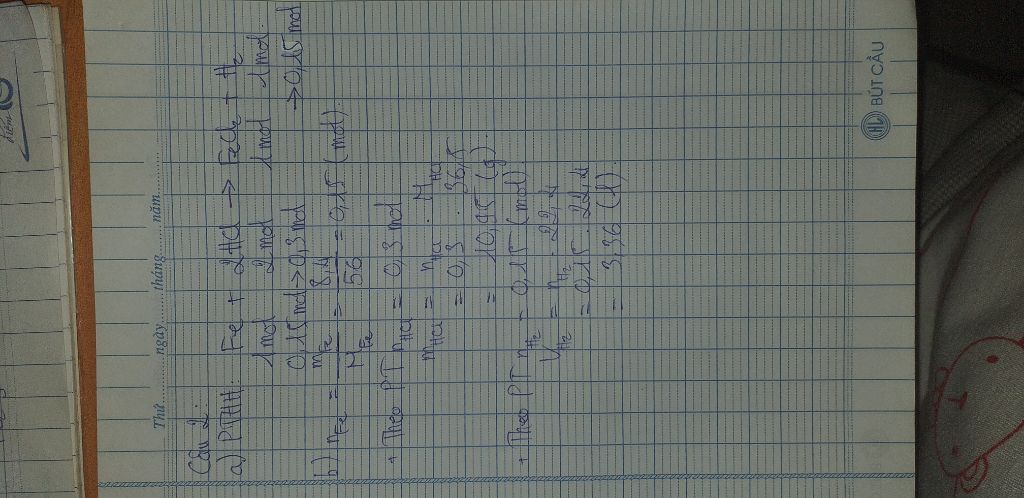 Thứ............ngày............tháng............năm............
Câu 2:
a) PTHH: Fe + 2HCl → FeCl₂ + H₂
1mol 2mol 1mol 1mol
0,15mol → 0,3mol → 0,15mol
b) n_Fe = m_Fe / M_Fe = 8,4 / 56 = 0,15 (mol).
+ Theo PT n_HCl = 0,3 mol
m_HCl = n_HCl . M_HCl
= 0,3 . 36,5
= 10,95 (g).
+ Theo PT n_H₂ = 0,15 (mol)
V_H₂ = n_H₂ . 22,4
= 0,15 . 22,4
= 3,36 (l).
HL BÚT CẦU
điểm